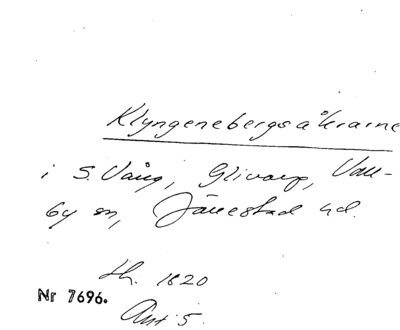 Klyngenebergsåkrarne
i S. Vång, Glivarp, Vall-
by sn, Järrestad hd.
Lh. 1820
Nr 7696.
Akt 5.